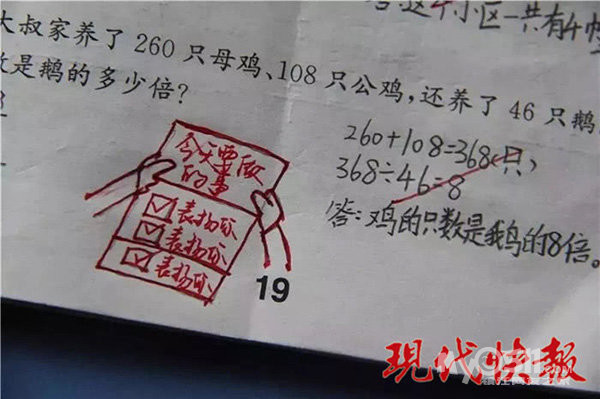 这个小区一共有4幢
大叔家养了 260 只母鸡、108 只公鸡,还养了 46 只鹅
数是鹅的多少倍?
260+108=368(只)
368÷46=8
答:鸡的只数是鹅的8倍。
今天要做
的事
表扬你
表扬你
表扬你
19
现代快报